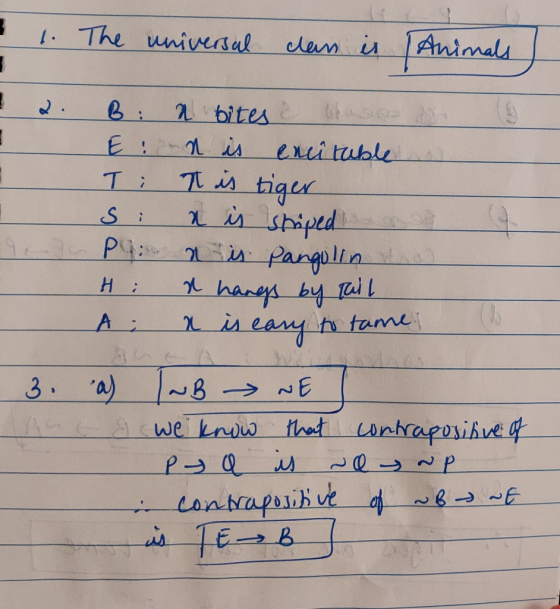 1. The universal class is Animals
2. B : x bites
E : x is excitable
T : x is tiger
S : x is striped
P : x is Pangolin
H : x hangs by tail
A : x is easy to tame
3. a) ~B → ~E
we know that contrapositive of
P → Q is ~Q → ~P
∴ contrapositive of ~B → ~E
is E → B